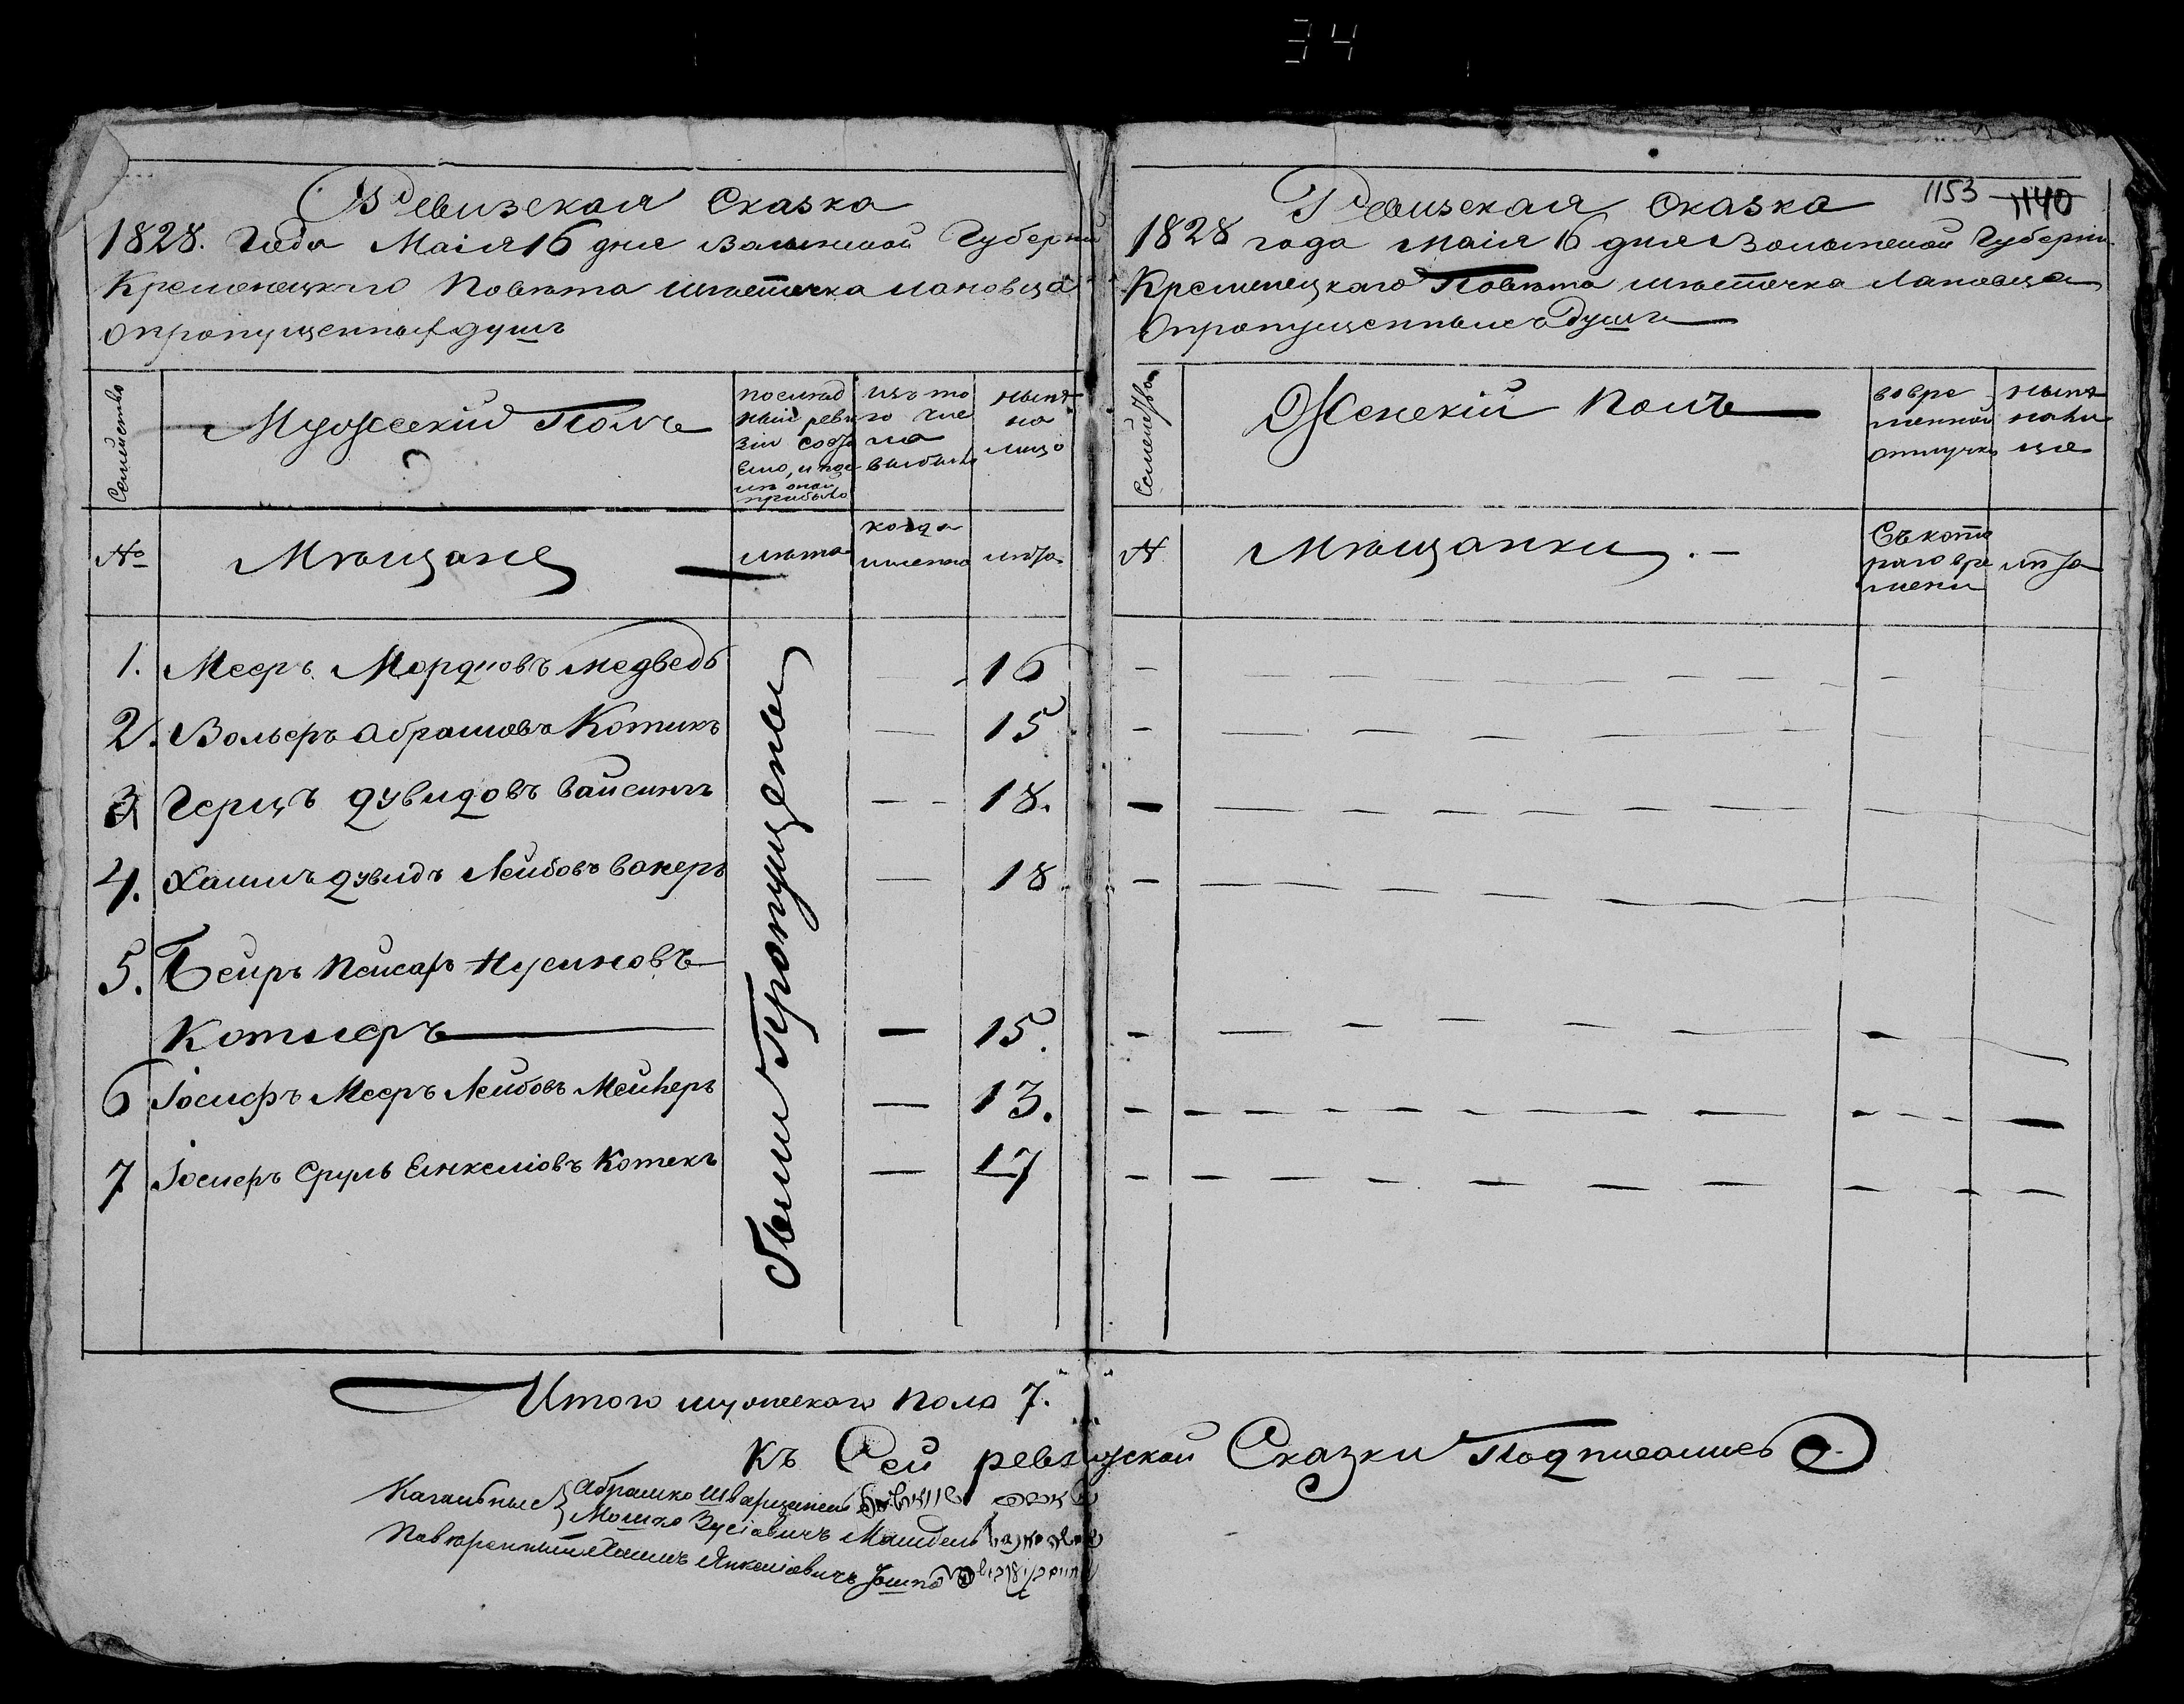 34
Ревизская Сказка
1828. Года Маія 16 дня Волынской Губерніи
Кременецкого Повѣта мѣстечка Лановца
О пропущенныхъ душъ
Семейство
Мужескій Полъ
последней ревизіи состояло, и после оной прибыло
изъ того числа выбыло
нынѣ на лицо
№
Мѣщане
лѣта
когда именно
лѣта
1. Мееръ Мордковъ Медведь — 16
2. Вольеръ Абрамовъ Котикъ — 15
3 Герцъ Дувидовъ Вайсинъ — 18.
4. Хаимъ Дувидъ Лейбовъ Вакеръ — 18
5. Беиръ Пейсахъ Нусиновъ
Котлеръ — 15.
6 Іосифъ Мееръ Лейбовъ — 13.
7 Іосифъ Сруль Енкеліовъ Котекъ — 17
были Пропущены
Итого мужескаго пола 7.
1153 1140
Ревизская Сказка
1828 года Маія 16 дня Волынской Губерніи
Кременецкаго Повѣта мѣстечка Лановца
О пропущенныхъ душъ
Семейство
Женскій Полъ
во временной отлучки
нынѣ на лице
№
Мѣщанки. —
Съ котораго времени
лѣта
Къ Сей ревизской Сказки Подписались
Кагальные Абрамко
Мошко Зусіовичъ
Повѣренный Хаимъ Янкеліовичъ